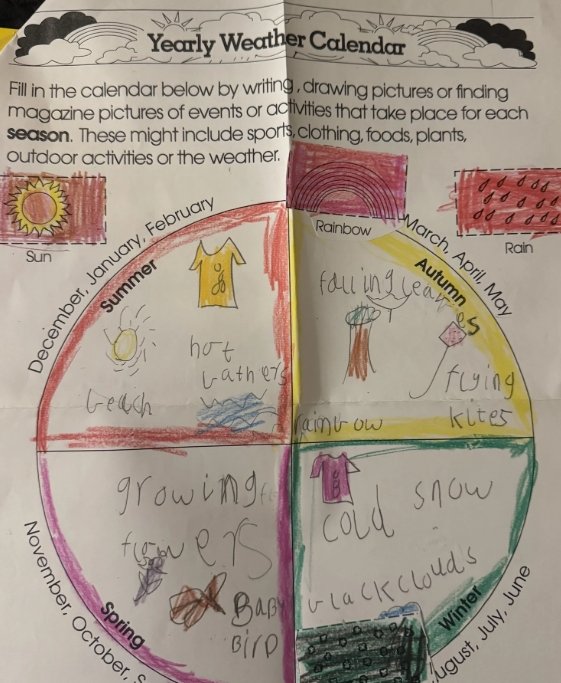 Yearly Weather Calendar
Fill in the calendar below by writing, drawing pictures or finding
magazine pictures of events or activities that take place for each
season. These might include sports, clothing, foods, plants,
outdoor activities or the weather.
Sun
Rainbow
Rain
December, January, February
Summer
hot
beach
March, April, May
Autumn
falling leaves
flying
kites
rainbow
November, October, S
Spring
growing
flowers
Baby
Bird
August, July, June
Winter
cold snow
black clouds